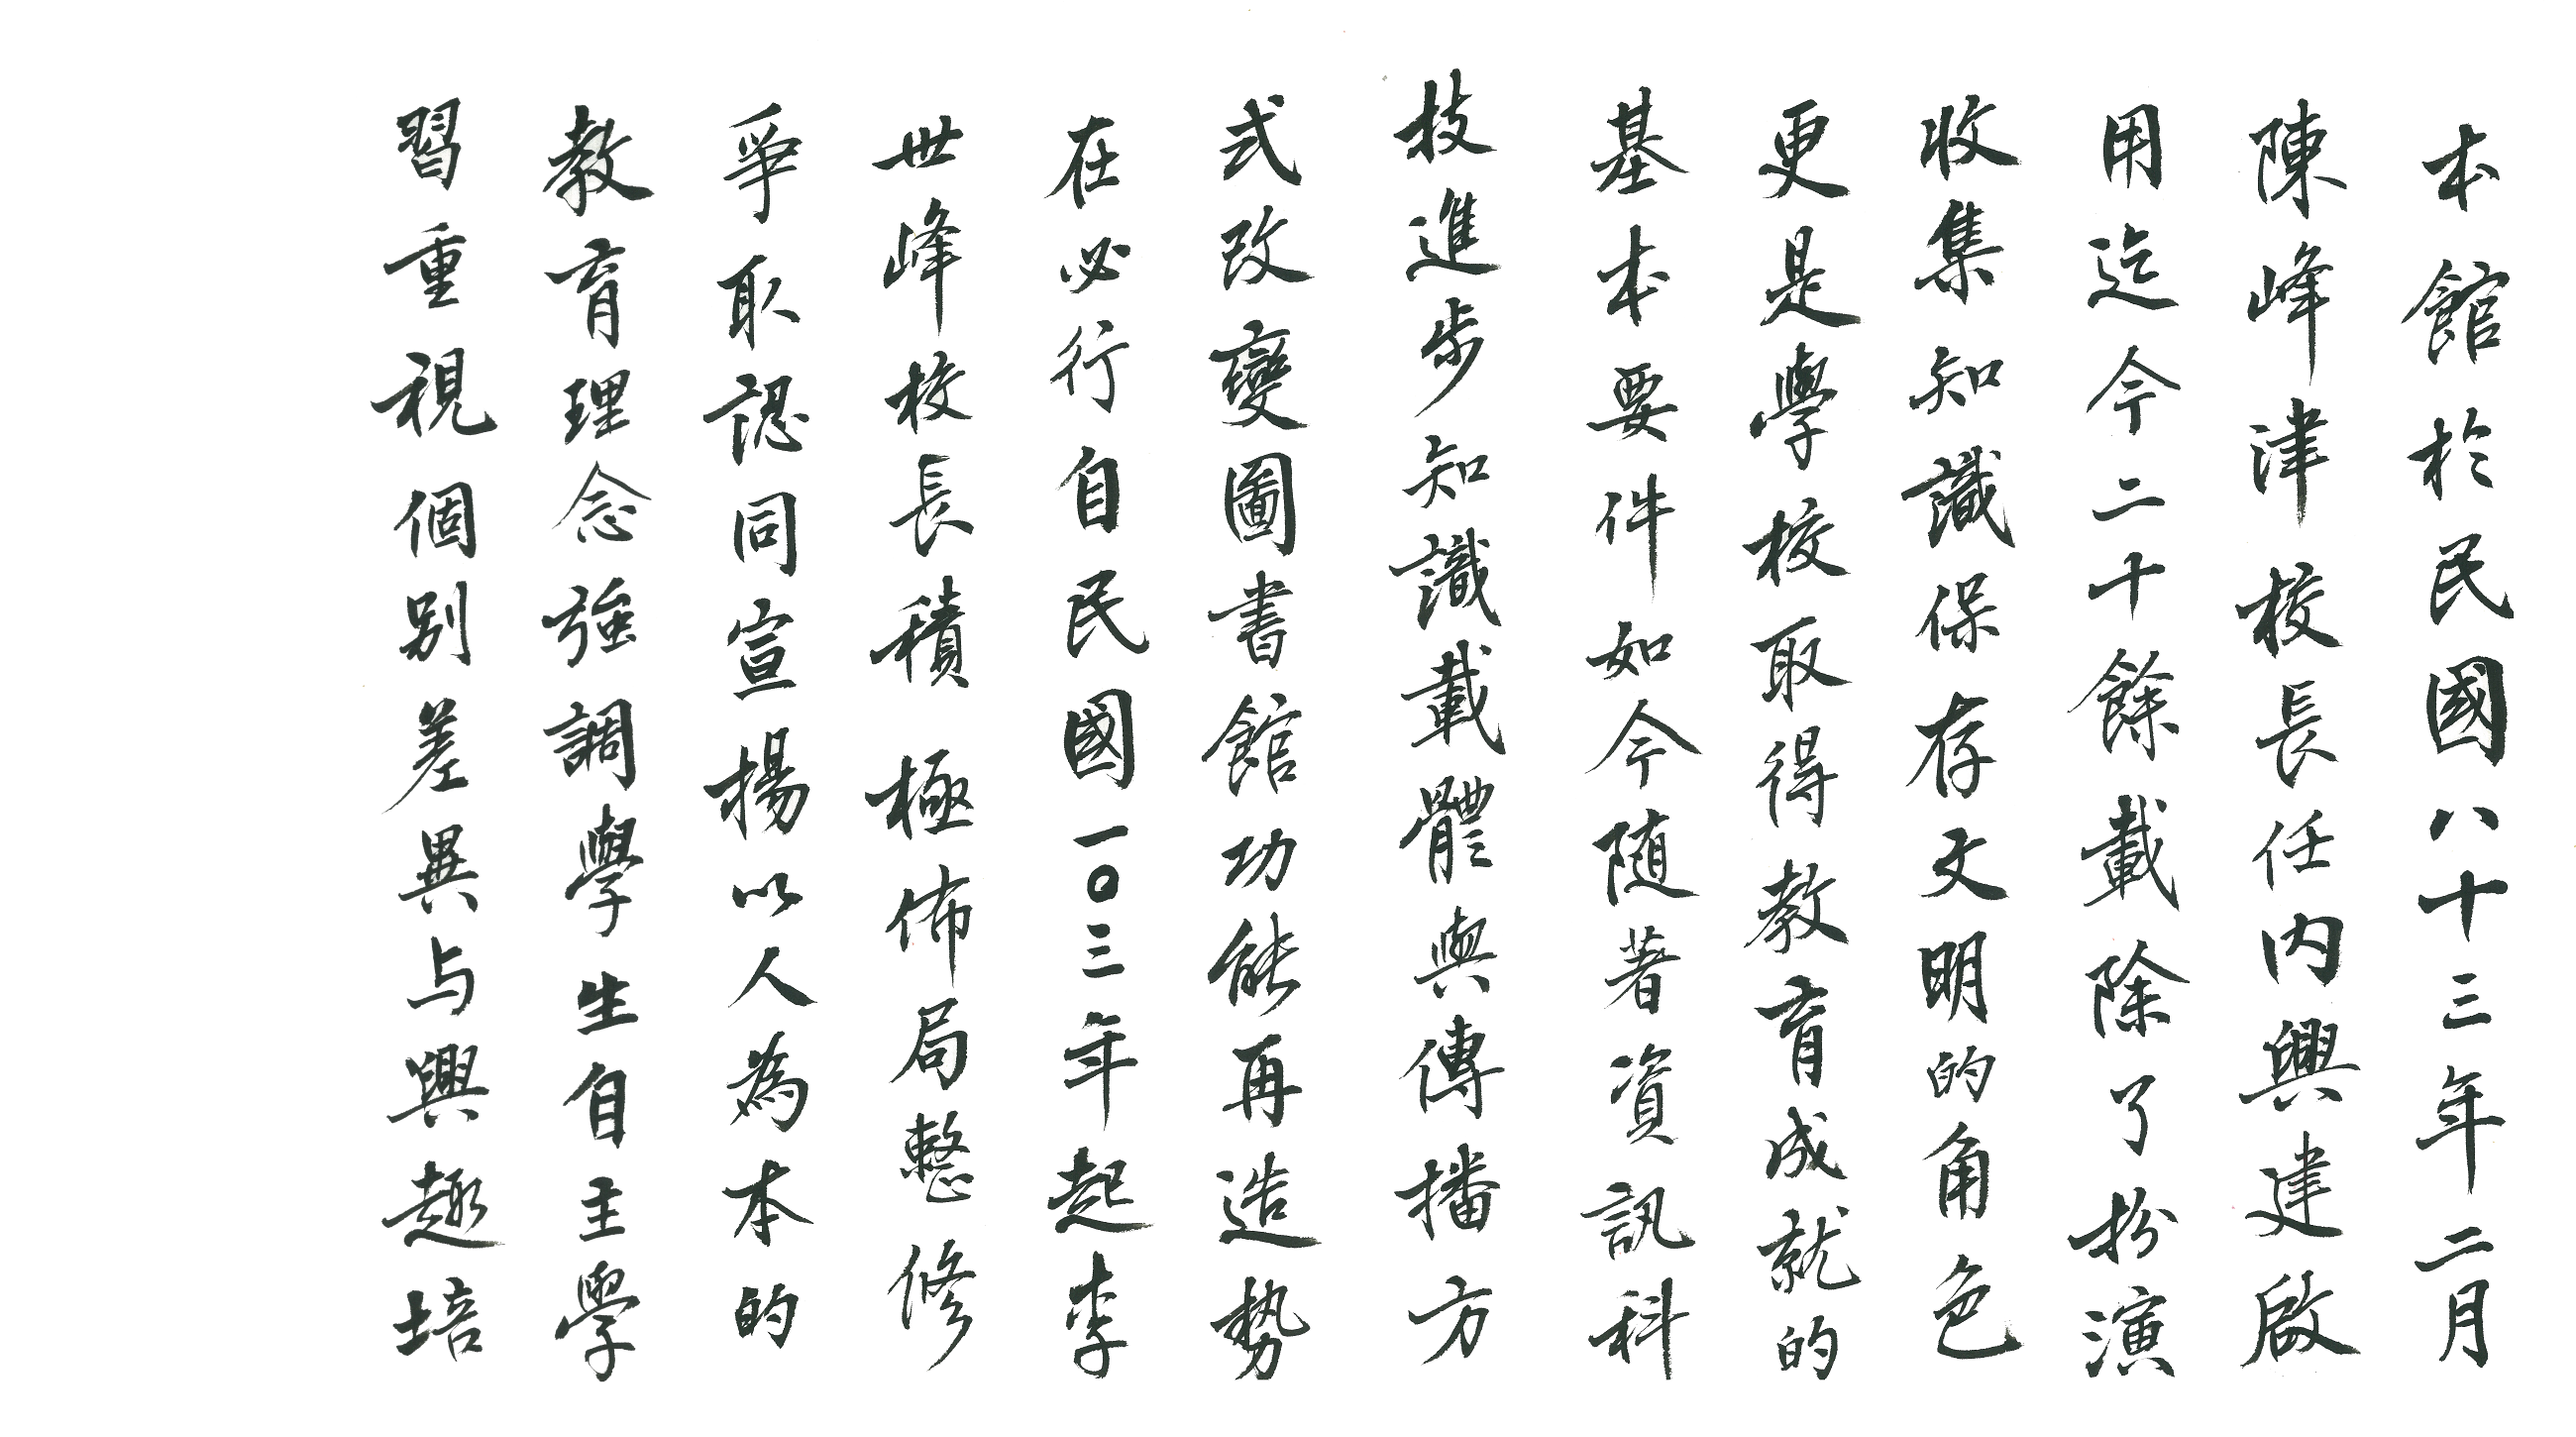 本館於民國八十三年二月
陳峰津校長任內興建啟
用迄今二十餘載除了扮演
收集知識保存文明的角色
更是學校取得教育成就的
基本要件如今随著資訊科
技進步知識載體與傳播方
式改變圖書館功能再造勢
在必行自民國一〇三年起李
世峰校長積極佈局整修
爭取認同宣揚以人為本的
教育理念強調學生自主學
習重視個別差異与興趣培